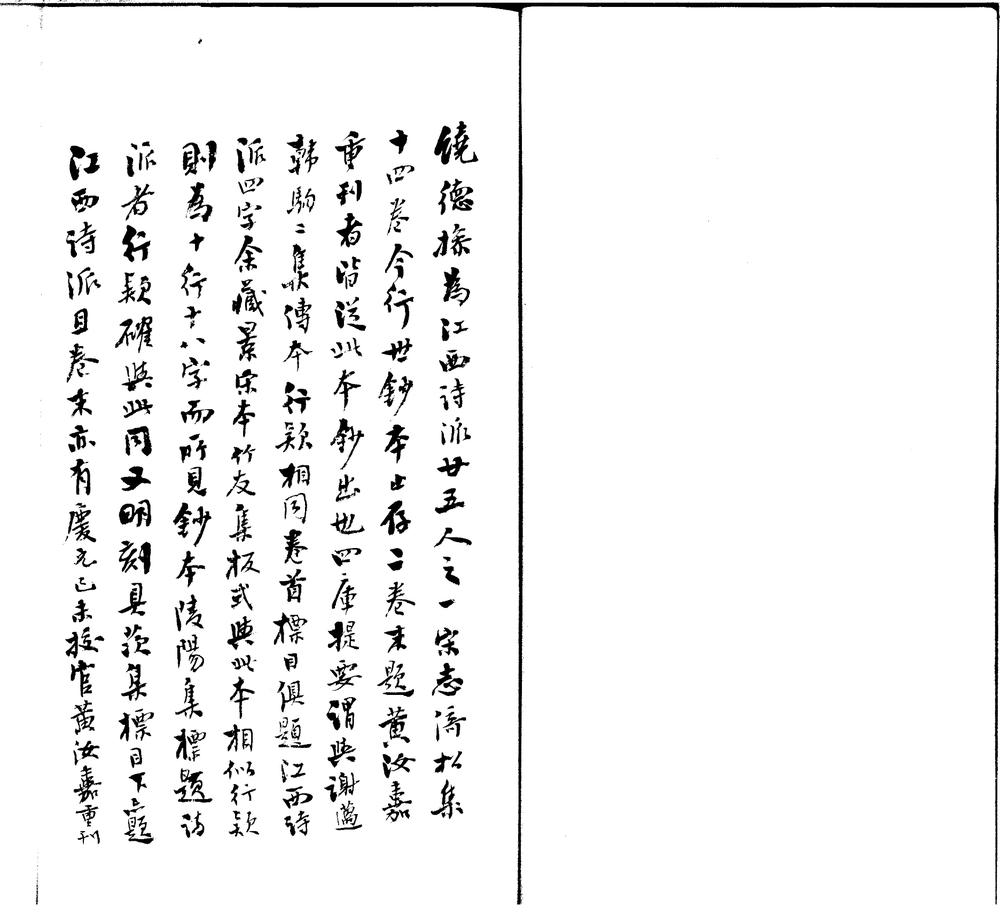 饒德操為江西詩派廿五人之一宋志倚松集
十四卷今行世鈔本止存二卷末題黃汝嘉
重刊者皆從此本鈔出也四庫提要謂與謝薖
韓駒二集傳本行款相同卷首標目俱題江西詩
派四字余藏景宋本竹友集板式與此本相似行款
則為十行十八字而所見鈔本陵陽集標題詩
派者行款確與此同又明刻具茨集標目下亦題
江西詩派且卷末亦有慶元己未校官黃汝嘉重刊